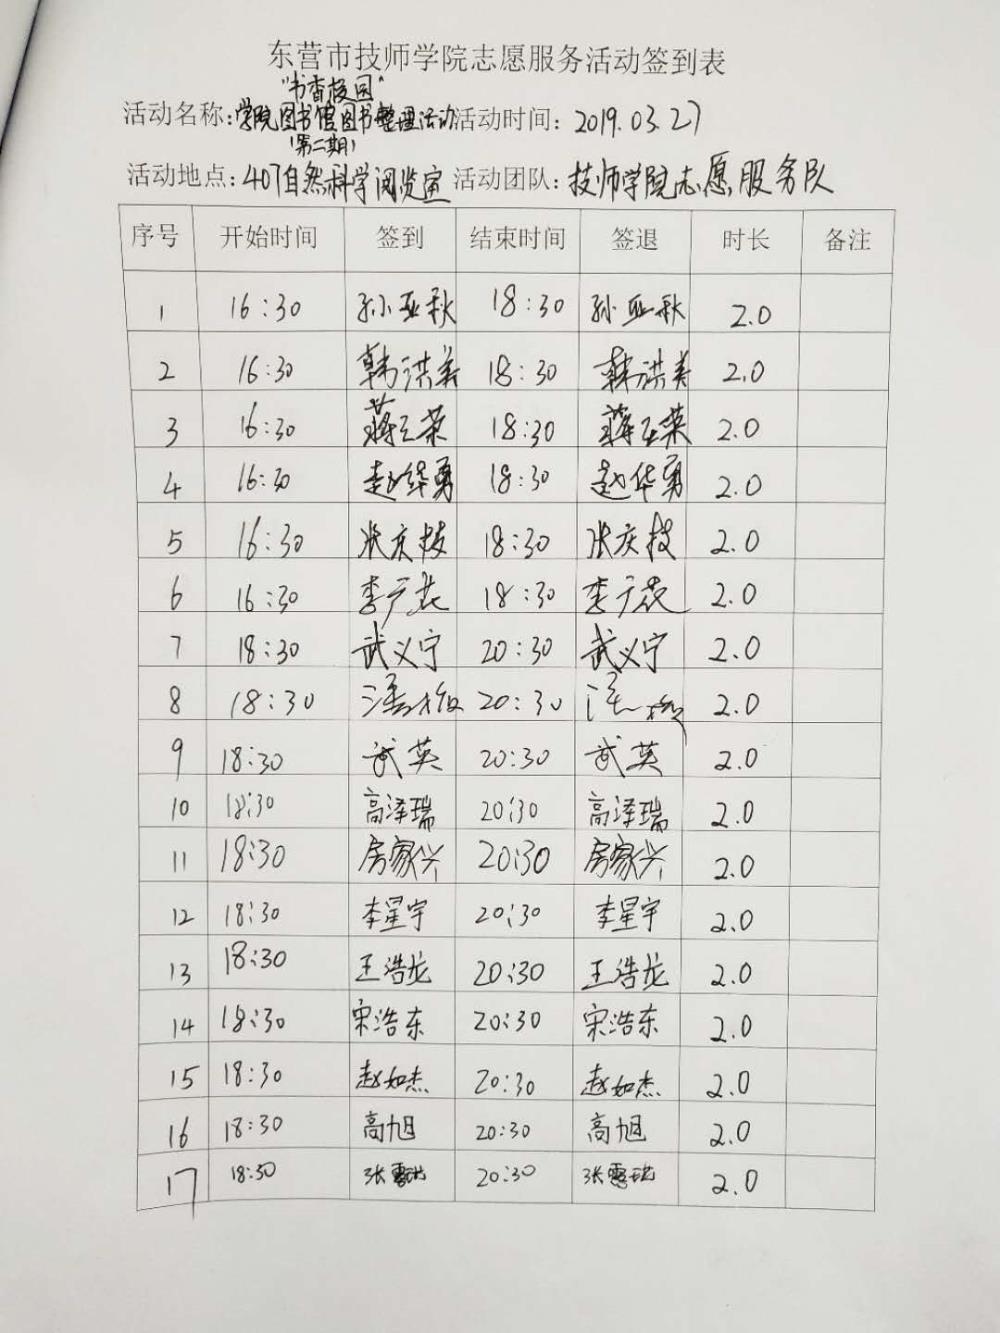 东营市技师学院志愿服务活动签到表
"书香校园"
活动名称:学院图书馆图书整理活动 活动时间: 2019.03.27
(第二期)
活动地点: 407自然科学阅览室 活动团队: 技师学院志愿服务队
序号 开始时间 签到 结束时间 签退 时长 备注
1 16:30 孙亚秋 18:30 孙亚秋 2.0
2 16:30 韩洪美 18:30 韩洪美 2.0
3 16:30 18:30 2.0
4 16:30 赵华勇 18:30 赵华勇 2.0
5 16:30 张庆技 18:30 张庆技 2.0
6 16:30 李广花 18:30 李广花 2.0
7 18:30 武义宁 20:30 武义宁 2.0
8 18:30 20:30 2.0
9 18:30 武英 20:30 武英 2.0
10 18:30 高泽瑞 20:30 高泽瑞 2.0
11 18:30 房家兴 20:30 房家兴 2.0
12 18:30 李星宇 20:30 李星宇 2.0
13 18:30 王浩龙 20:30 王浩龙 2.0
14 18:30 宋浩东 20:30 宋浩东 2.0
15 18:30 赵如杰 20:30 赵如杰 2.0
16 18:30 高旭 20:30 高旭 2.0
17 18:30 20:30 2.0